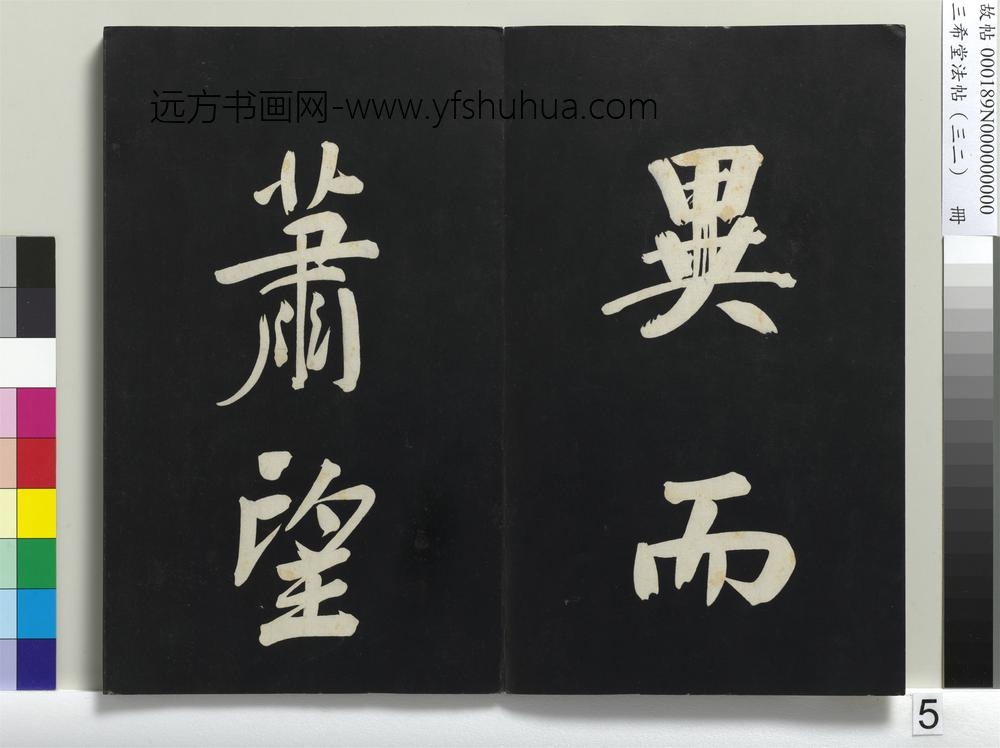 故帖 000189N000000000
三希堂法帖（三二） 冊
远方书画网-www.yfshuhua.com
異而
蕭望
5